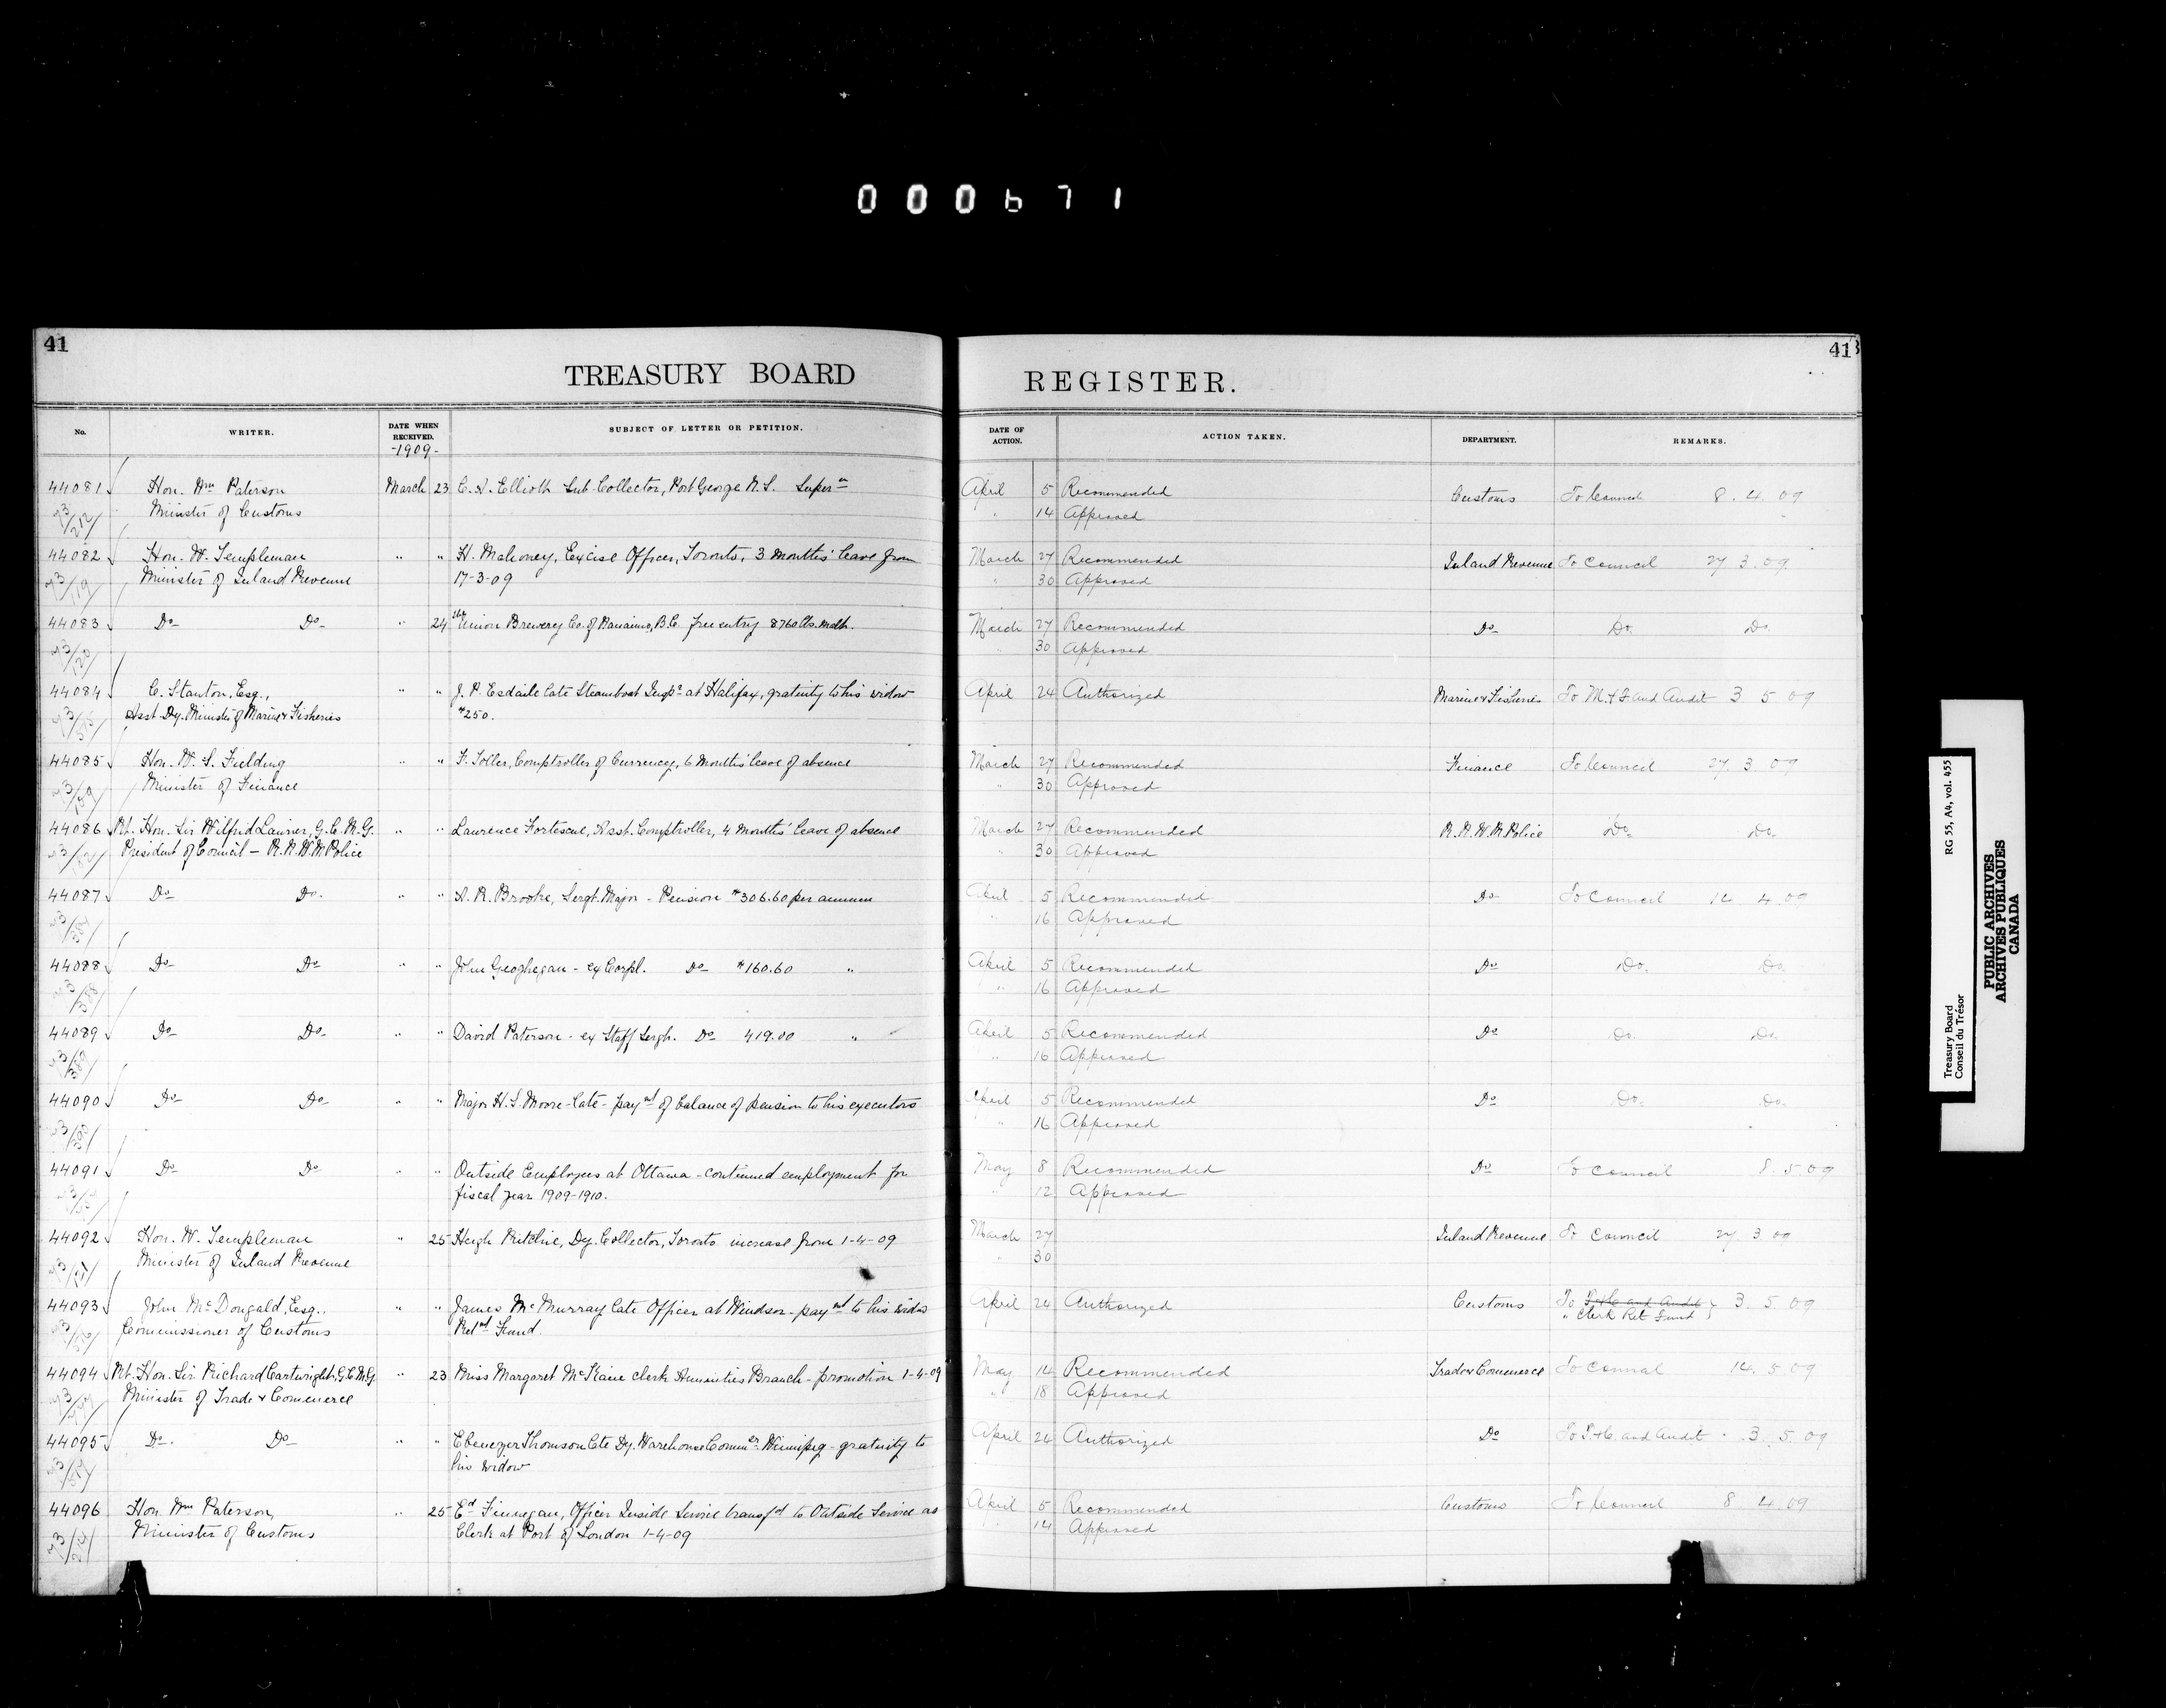 000671
41
TREASURY BOARD
REGISTER.
41
No.
WRITER.
DATE WHEN RECEIVED.
-1909-
SUBJECT OF LETTER OR PETITION.
DATE OF ACTION.
ACTION TAKEN.
DEPARTMENT.
REMARKS.
44081 Hon. Wm Paterson March 23 C. A. Elliott Sub-Collector, Port George N.S. Super'n April 5 Recommended Customs To Council 8. 4. 09
Minister of Customs " 14 Approved
44082 Hon. W. Templeman " " H. Mahoney, Excise Officer, Toronto, 3 months' leave from March 27 Recommended Inland Revenue To Council 27 3. 09
Minister of Inland Revenue 17-3-09 " 30 Approved
44083 Do Do " 24 the Union Brewery Co. of Nanaimo, B.C. free entry 8760 lbs. malt. March 27 Recommended Do Do. Do
" 30 Approved
44084 C. Stanton, Esq., " " J. P. Esdaile late Steamboat Insp'r at Halifax, gratuity to his widow April 24 Authorized Marine & Fisheries To M. & F and Audit 3 5 09
Asst. Dy. Minister of Marine & Fisheries $250.
44085 Hon. W. S. Fielding " " F. Toller, Comptroller of Currency, 6 months' leave of absence March 27 Recommended Finance To Council 27. 3. 09
Minister of Finance " 30 Approved
44086 Rt. Hon. Sir Wilfrid Laurier, G.C.M.G. " " Laurence Fortescue, Asst. Comptroller, 4 months' leave of absence March 27 Recommended R.N.W.M. Police Do Do
President of Council - R.N.W.M. Police " 30 Approved
44087 Do Do. " " A. R. Brooke, Sergt. Major - Pension $306.60 per annum April 5 Recommended Do To Council 14 4. 09
" 16 Approved
44088 Do Do " " John Geoghegan - ex Corpl. Do $160.60 " April 5 Recommended Do Do. Do.
" 16 Approved
44089 Do Do " " David Paterson - ex Staff Sergt. Do 419.00 " April 5 Recommended Do Do. Do.
" 16 Approved
44090 Do Do " " Major H. S. Moore - late - paynt of balance of pension to his executors April 5 Recommended Do Do. Do.
" 16 Approved
44091 Do Do " " Outside Employees at Ottawa - continued employment for May 8 Recommended Do To Council 8. 5. 09
fiscal year 1909-1910. " 12 Approved
44092 Hon. W. Templeman " 25 Hugh Ritchie, Dy. Collector, Toronto increase from 1-4-09 March 27 Inland Revenue To Council 27 3 09
Minister of Inland Revenue " 30
44093 John McDougald, Esq., " " James McMurray late Officer at Windsor - paynt to his widow April 24 Authorized Customs To T&C and Audit 3. 5. 09
Commissioner of Customs Retnt Fund. " Clerk Ret Fund
44094 Rt. Hon. Sir Richard Cartwright, G.C.M.G. " 23 Miss Margaret McKane clerk Annuities Branch - promotion 1-4-09 May 14 Recommended Trade & Commerce To Council 14. 5 09
Minister of Trade & Commerce " 18 Approved
44095 Do. Do " " Ebenezer Thomson late Dy. Warehouse Commr. Winnipeg - gratuity to April 24 Authorized Do To T. & C. and Audit 3. 5. 09
his widow
44096 Hon. Wm Paterson, " 25 Ed Finnegan, Officer Inside Service transf'd to Outside Service as April 5 Recommended Customs To Council 8 4. 09
Minister of Customs Clerk at Port of London 1-4-09 " 14 Approved
Treasury Board RG 55, A4, vol. 455
Conseil du Trésor
PUBLIC ARCHIVES
ARCHIVES PUBLIQUES
CANADA